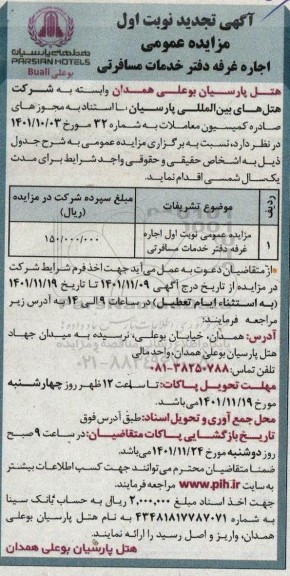 آگهی تجدید نوبت اول
مزایده عمومی
اجاره غرفه دفتر خدمات مسافرتی
هتلهای پارسیان
PARSIAN HOTELS
بوعلی Buali
هتل پارسیان بوعلی همدان وابسته به شرکت
هتل‌های بین‌المللی پارسیان، با استناد به مجوزهای
صادره کمیسیون معاملات به شماره ۳۲ مورخ ۱۴۰۱/۱۰/۰۳
در نظر دارد، نسبت به برگزاری مزایده عمومی به شرح جدول
ذیل به اشخاص حقیقی و حقوقی واجد شرایط برای مدت
یک‌سال شمسی اقدام نماید.
ردیف موضوع تشریفات مبلغ سپرده شرکت در مزایده (ریال)
۱ مزایده عمومی نوبت اول اجاره غرفه دفتر خدمات مسافرتی ۱۵۰/۰۰۰/۰۰۰
از متقاضیان دعوت به عمل می‌آید جهت اخذ فرم شرایط شرکت
در مزایده از تاریخ درج آگهی ۱۴۰۱/۱۱/۰۹ تا تاریخ ۱۴۰۱/۱۱/۱۹
(به استثناء ایام تعطیل) در ساعات ۹ الی ۱۴ به آدرس زیر
مراجعه فرمایند:
آدرس: همدان، خیابان بوعلی، نرسیده به میدان جهاد
هتل پارسیان بوعلی همدان، واحد مالی
تلفن تماس: ۳۸۲۵۰۷۸۸-۰۸۱
مهلت تحویل پاکات: تا ساعت ۱۲ ظهر روز چهارشنبه
مورخ ۱۴۰۱/۱۱/۱۹ می‌باشد.
محل جمع آوری و تحویل اسناد: طبق آدرس فوق
تاریخ بازگشایی پاکات متقاضیان: در ساعت ۹ صبح
روز دوشنبه مورخ ۱۴۰۱/۱۱/۲۴ می‌باشد.
ضمنا متقاضیان محترم می‌توانند جهت کسب اطلاعات بیشتر
به سایت www.pih.ir مراجعه فرمایند.
جهت اخذ اسناد مبلغ ۲,۰۰۰,۰۰۰ ریال به حساب بانک سینا
به شماره ۴۳۴۸۱۸۱۷۷۸۷۰۷۱ به نام هتل پارسیان بوعلی
همدان، واریز و اصل رسید را ارائه نمایند.
هتل پارسیان بوعلی همدان